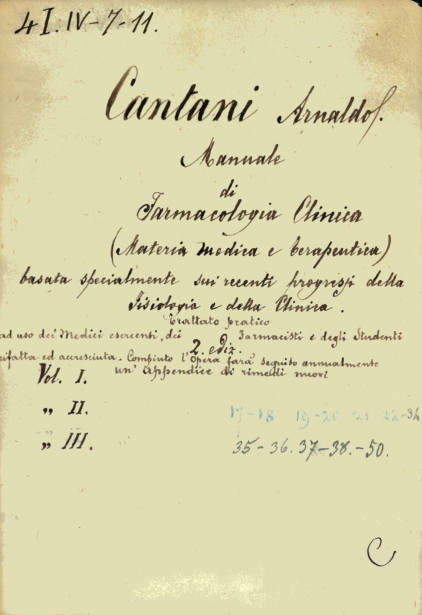 4 I. IV-7-11.
Cantani Arnaldo.
Manuale
di
Farmacologia Clinica
(Materia medica e terapeutica)
basata specialmente sui recenti progressi della
Fisiologia e della Clinica.
Trattato pratico
ad uso dei Medici esercenti, dei Farmacisti e degli Studenti
2. ediz.
rifatta ed accresciuta. Compiuto l'Opera farà seguito annualmente
un'Appendice di rimedi nuovi
Vol. I.
„ II. 17-18 19-20 21-22-34
„ III. 35-36. 37-38.-50.
C